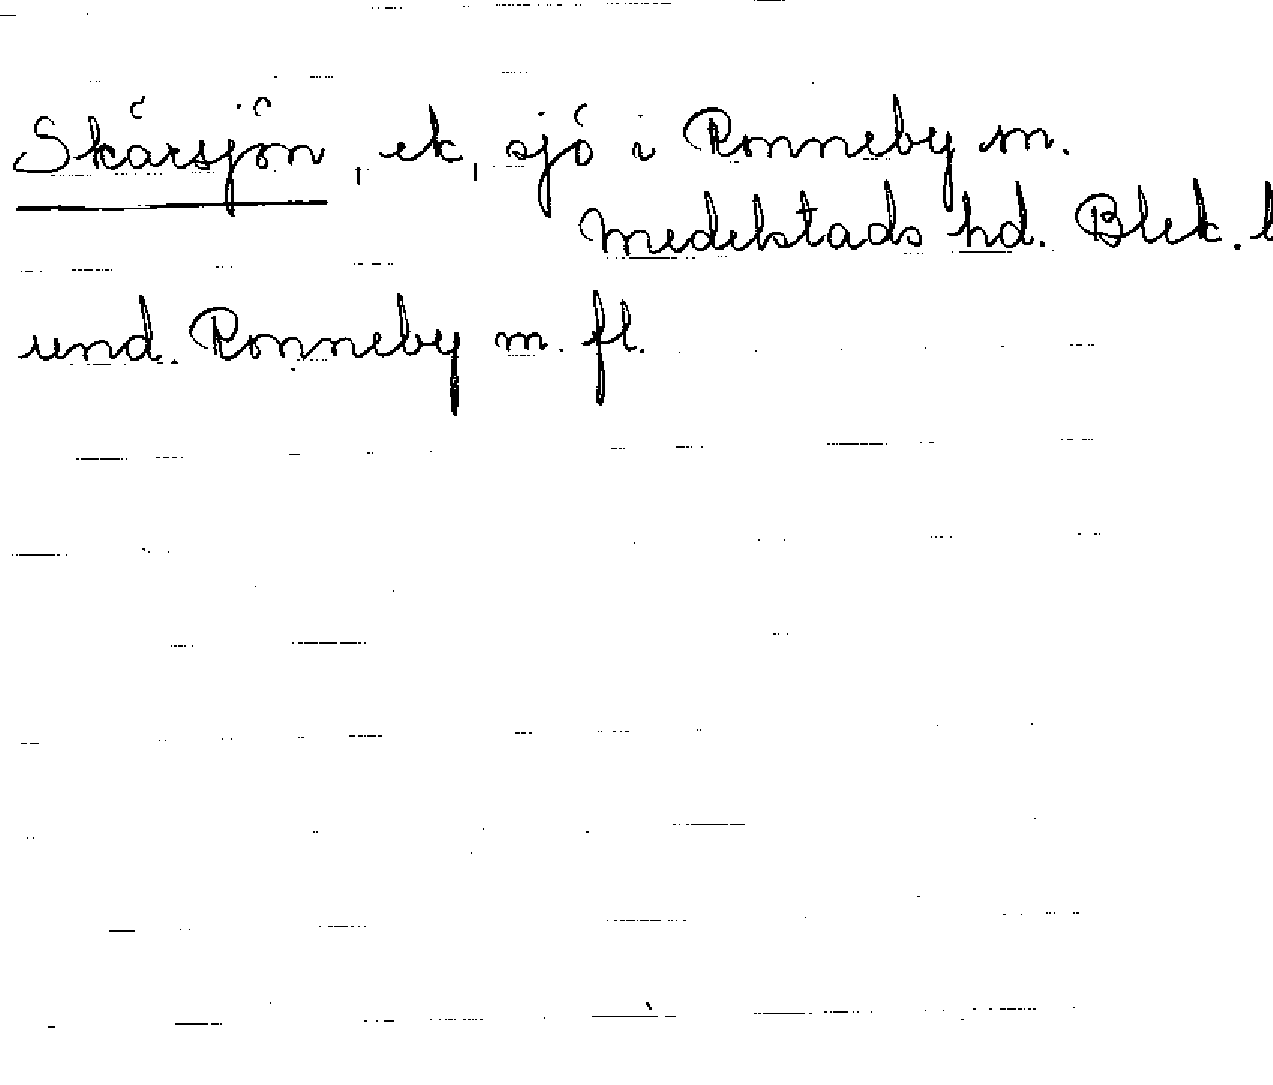 Skärsjön, ek, sjö i Ronneby m.
Medelstads hd. Blek. l
und. Ronneby m. fl.